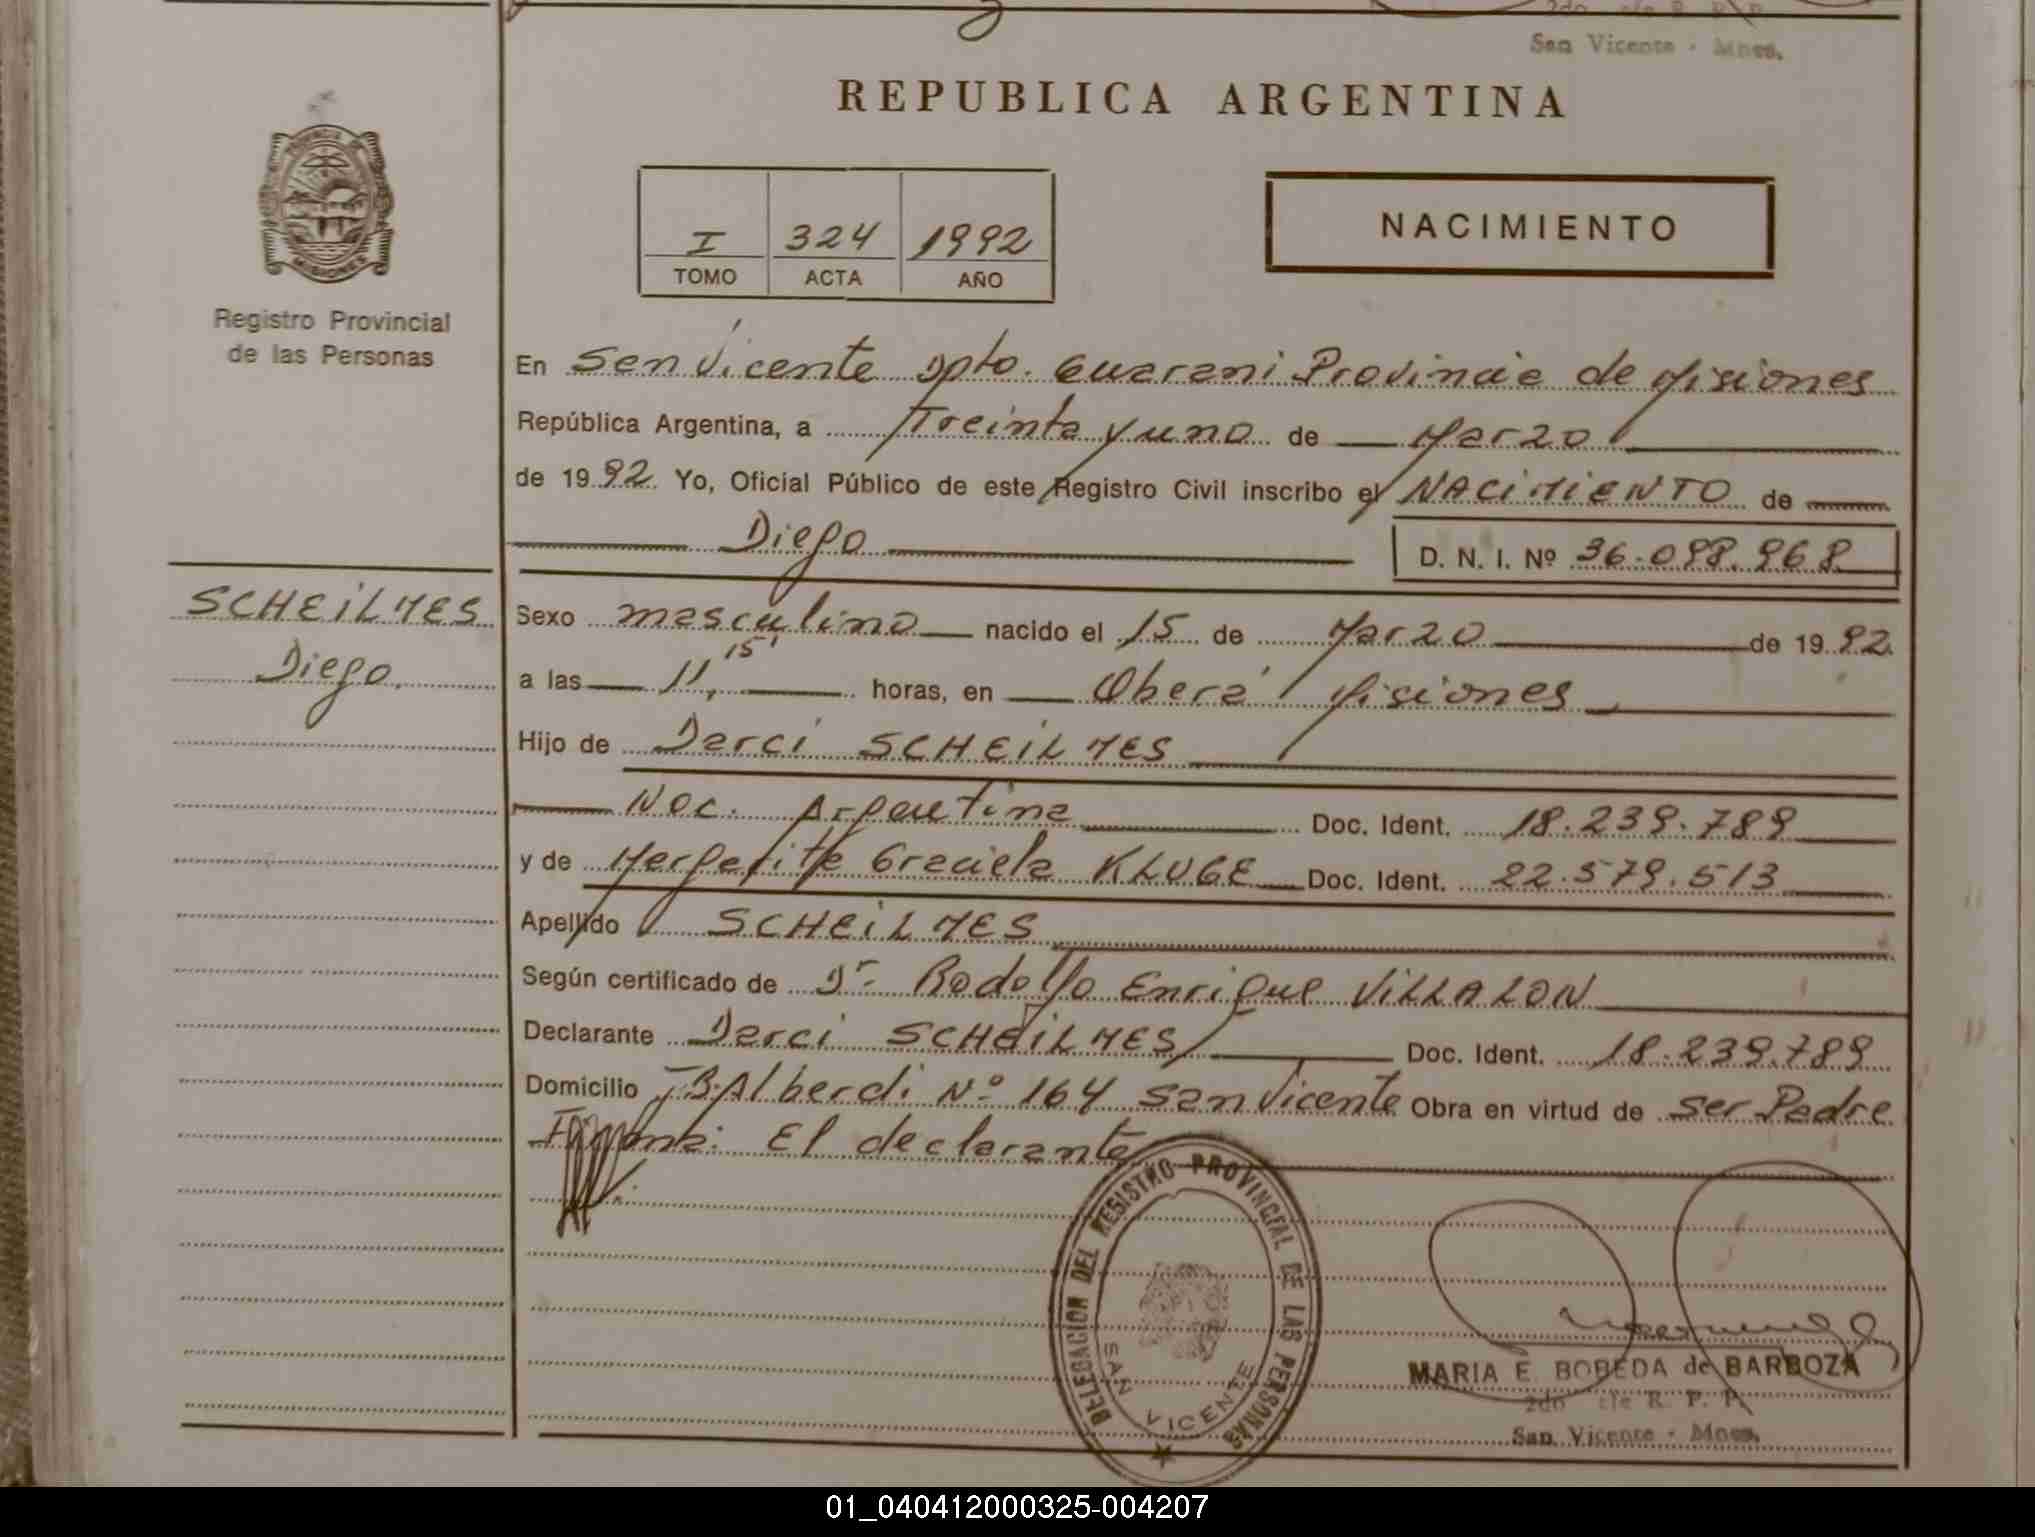 San Vicente - Mnes.
REPUBLICA ARGENTINA
PROVINCIA DE
MISIONES
Registro Provincial
de las Personas
I 324 1992
TOMO ACTA AÑO
NACIMIENTO
En San Vicente Dpto. Guarani Provincia de Misiones
República Argentina, a Treinta y uno de Marzo
de 1992 Yo, Oficial Público de este Registro Civil inscribo el NACIMIENTO de
Diego
D. N. I. Nº 36.098.968
SCHEILMES
Diego.
Sexo masculino nacido el 15 de Marzo de 1992.
a las 11,15' horas, en Oberá Misiones
Hijo de Darci SCHEILMES
Nac. Argentina Doc. Ident. 18.239.789
y de Margarita Graciela KLUGE Doc. Ident. 22.579.513
Apellido SCHEILMES
Según certificado de Dr. Rodolfo Enrique VILLALON
Declarante Darci SCHEILMES Doc. Ident. 18.239.789
Domicilio J.B.Alberdi Nº 164 San Vicente Obra en virtud de ser Padre
Firma: El declarante
DELEGACION DEL REGISTRO PROVINCIAL DE LAS PERSONAS
SAN VICENTE
MARIA E. BOBEDA de BARBOZA
2do R. P. P.
San Vicente - Mnes.
01_040412000325-004207